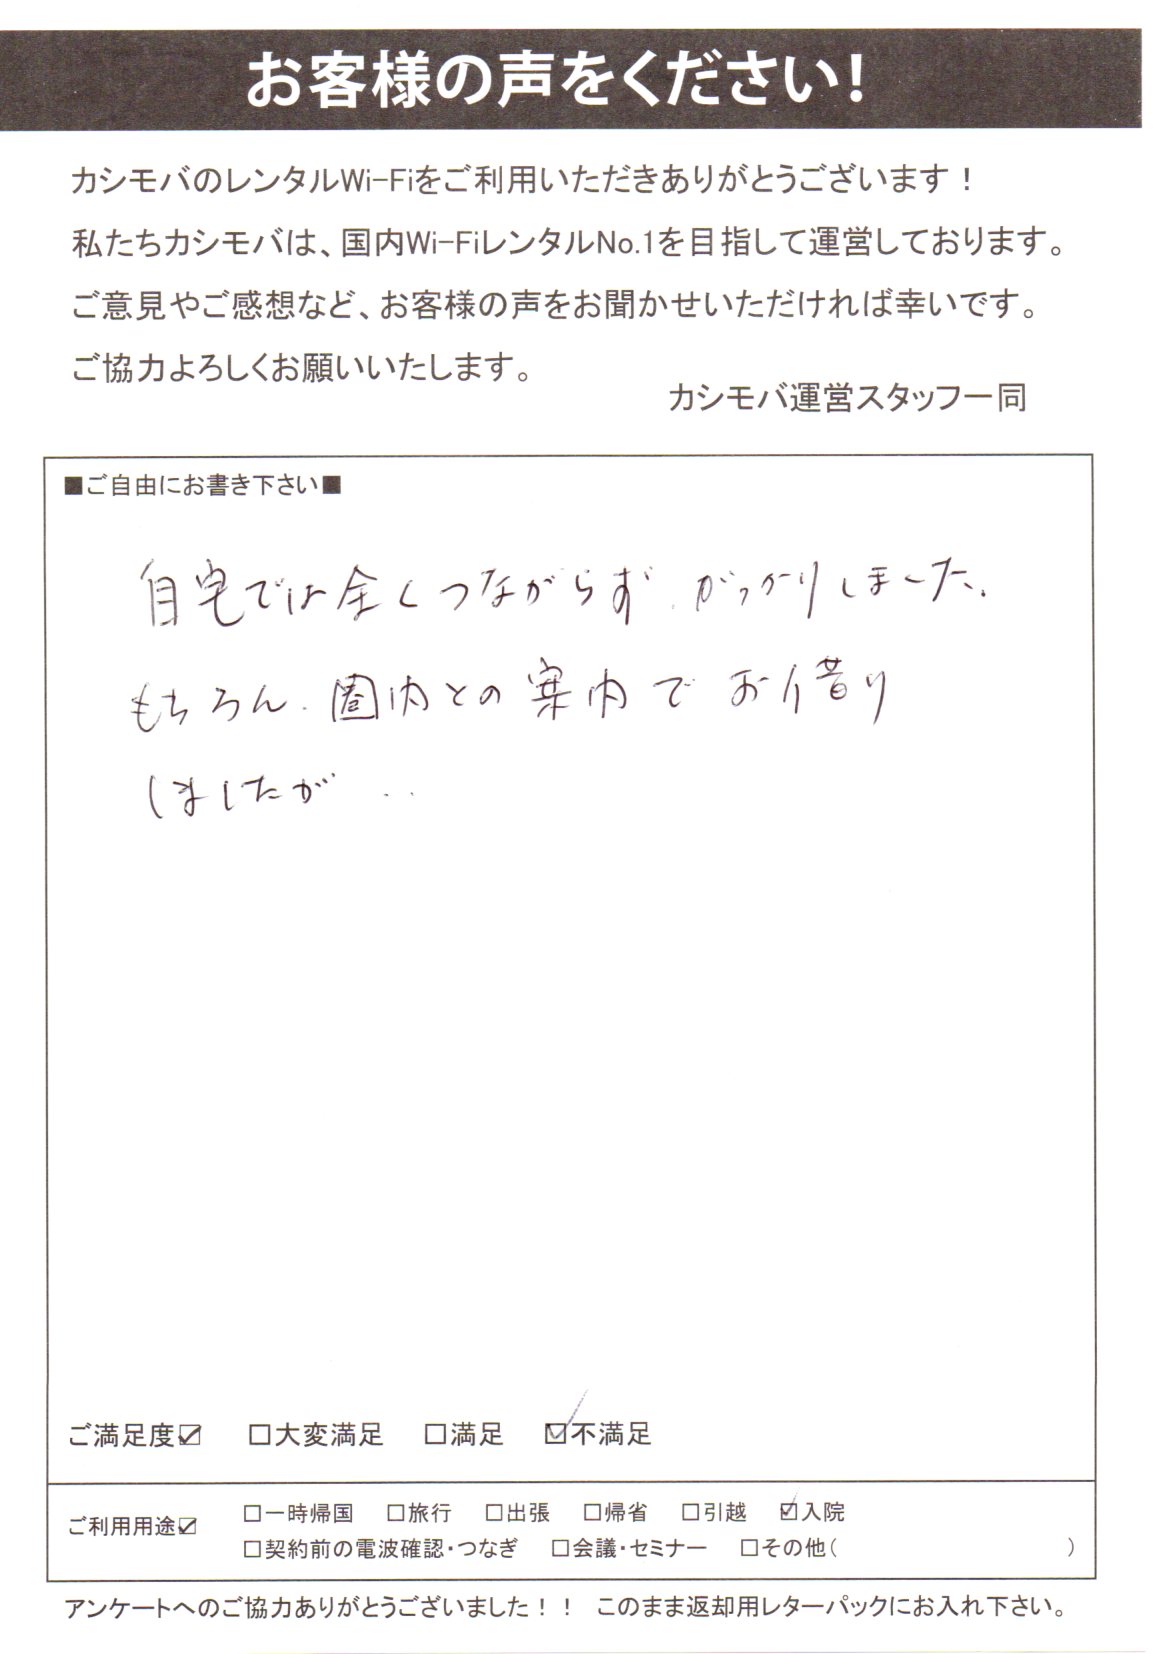 お客様の声をください!
カシモバのレンタルWi-Fiをご利用いただきありがとうございます！
私たちカシモバは、国内Wi-FiレンタルNo.1を目指して運営しております。
ご意見やご感想など、お客様の声をお聞かせいただければ幸いです。
ご協力よろしくお願いいたします。
カシモバ運営スタッフ一同
■ご自由にお書き下さい■
自宅では全くつながらず、がっかりしました。
もちろん、圏内との案内でお借り
しましたが...
ご満足度☑ □大変満足 □満足 ☑不満足
ご利用用途☑ □一時帰国 □旅行 □出張 □帰省 □引越 ☑入院
□契約前の電波確認・つなぎ □会議・セミナー □その他( )
アンケートへのご協力ありがとうございました！！ このまま返却用レターパックにお入れ下さい。